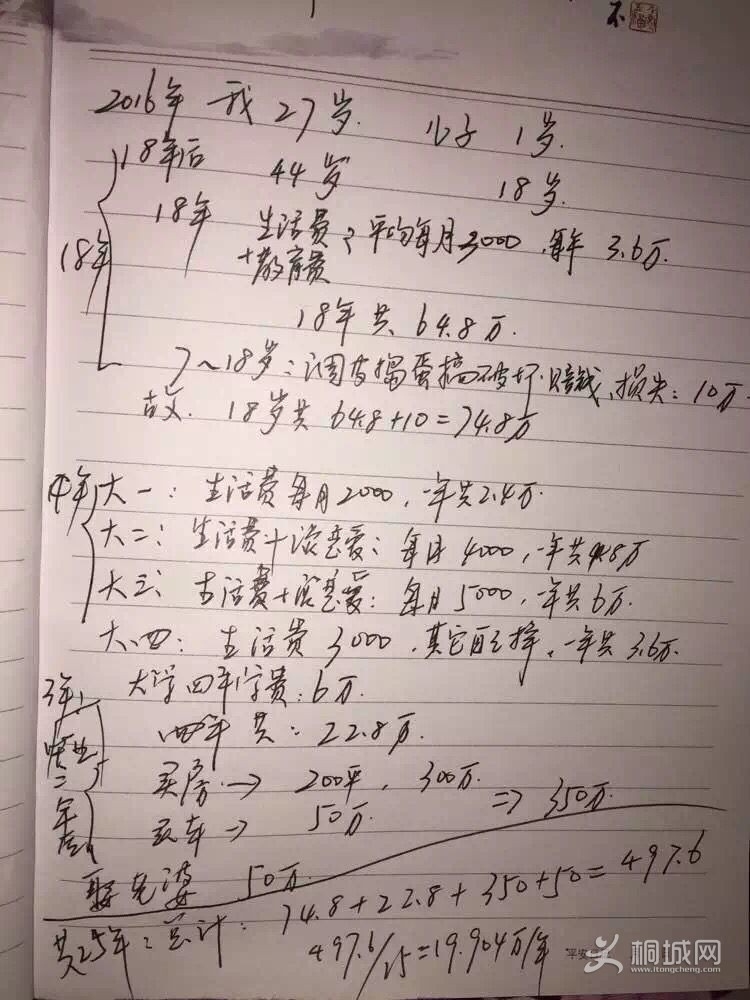 不
2016年 我 27岁. 儿子 1岁.
18年后 44岁 18岁.
18年 18年 生活费 平均每月3000, 每年 3.6万.
+教育费
18年共 64.8万.
7~18岁:调皮捣蛋搞破坏.赔钱、损失:10万.
故. 18岁共 64.8+10=74.8万
4年 大一:生活费每月2000,一年共2.4万.
大二:生活费+谈恋爱:每月4000,一年共4.8万
大三:生活费+谈恋爱:每月5000,一年共6万.
大四:生活费 3000.其它自己挣.一年共3.6万.
3年, 大学四年学费:6万.
毕业二年后 四年共:22.8万.
买房→ 200平,300万.
买车→ 50万. ⇒ 350万.
娶老婆 50万.
共25年:总计: 74.8+22.8+350+50=497.6
497.6/25=19.904万/年
平安
桐城网
www.itongcheng.com